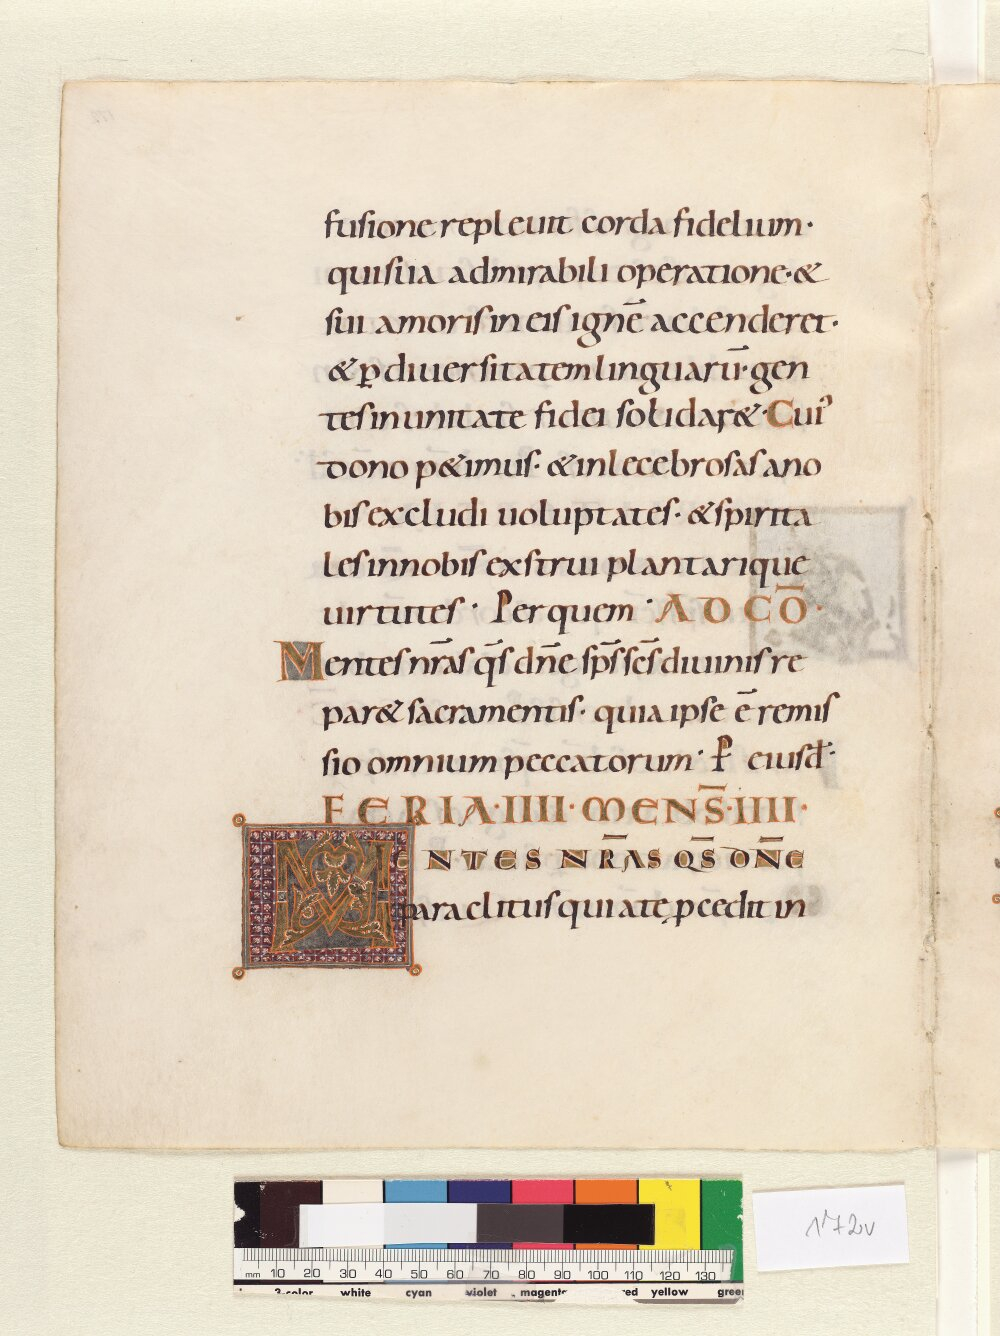 fusione repleuit corda fidelium·
qui sua admirabili operatione· &
sui amoris in eis ignē accenderet·
& ꝑ diuersitatem linguarū· gen
tes in unitate fidei solidar&· Cui᾿
dono p&imus· & inlecebrosas a no
bis excludi uoluptates· & spirita
les in nobis exstrui plantarique
uirtutes· Per quem· AD CŌ·
Mentes nr̄as qs̄ dn̄e sp̄s sc̄s diuinis re
par& sacramentis· quia ipse ē remis
sio omnium peccatorum· P̄ eiusd̄·
FERIA· IIII· MENS̄· IIII·
MENTES NR̄AS QS̄ DN̄E
paraclitus qui a te ꝓcedit in
172v
mm 10 20 30 40 50 60 70 80 90 100 110 120 130
3-color white cyan violet magenta red yellow green